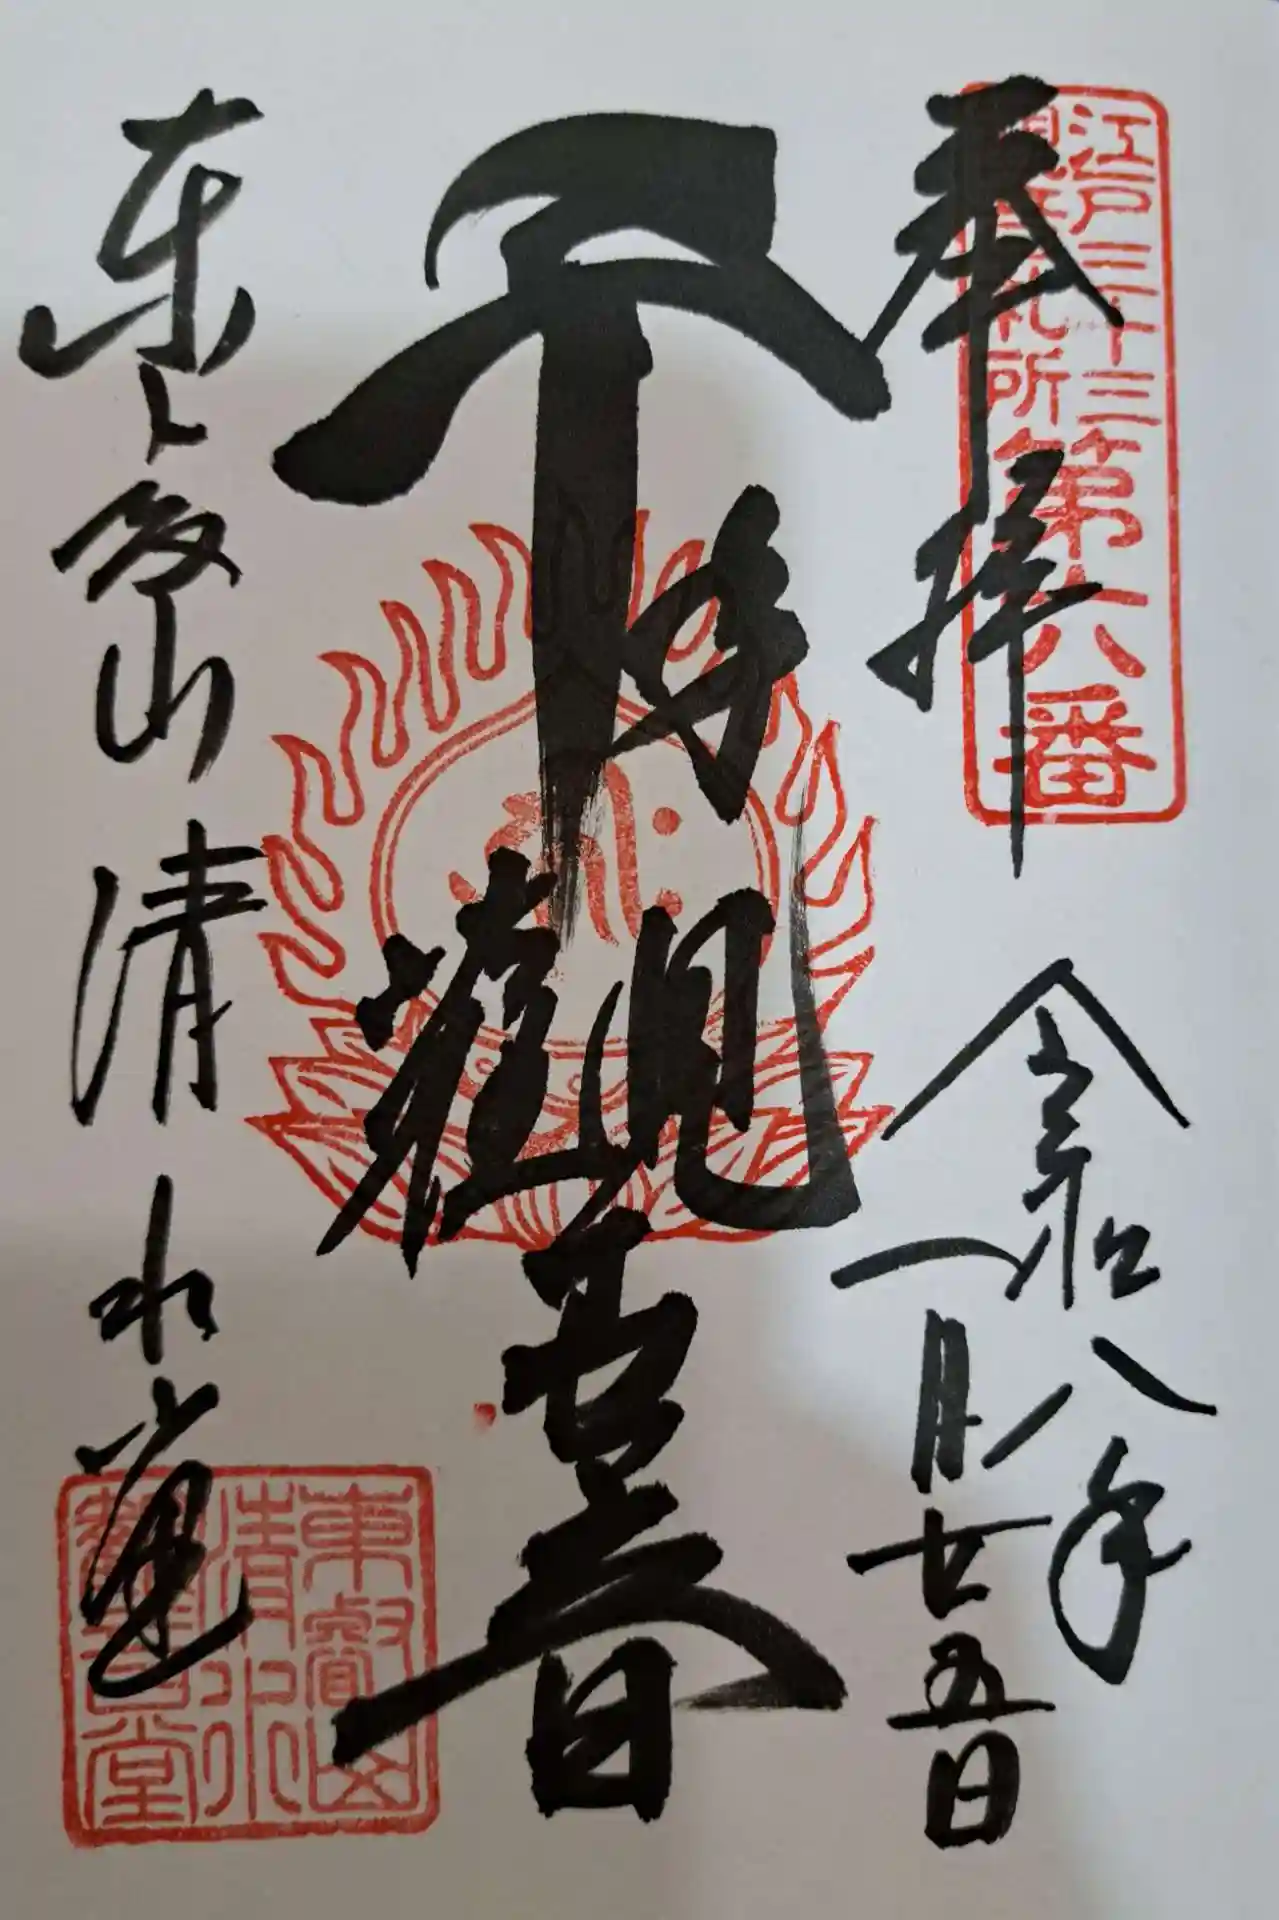 奉拝
江戸三十三
観音札所
第六番
令和八年
一月廿五日
千手観音
東叡山
清水堂
東叡山
清水
観音堂